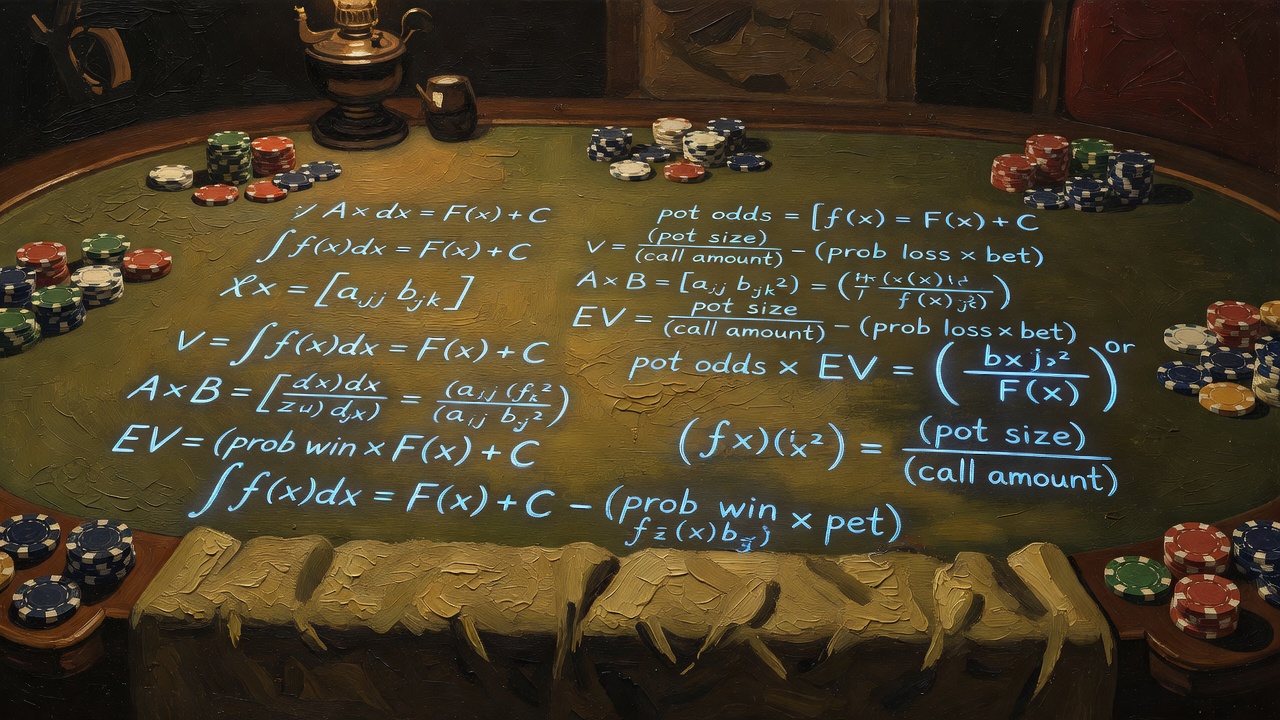 A × dx = F(x) + C
∫ f(x)dx = F(x) + C
x = [a_jj b_jk]
V = ∫ f(x)dx = F(x) + C
A × B = [dx)dx / zu) djx) = (a_ij (f_k² / (a_ij b_j²)
EV = (prob win × F(x) + C
∫ f(x)dx = F(x) + C − (prob win × pet)
pot odds = [f(x) = F(x) + C
v = (pot size) / (call amount) − (prob loss × bet)
A × B = [a_jj b_jk²) = ( f(x)
EV = pot size / (call amount) − (prob loss × bet)
pot odds × EV = (bx j₂² / F(x)) or
(fx)(i x²) = (pot size) / (call amount)